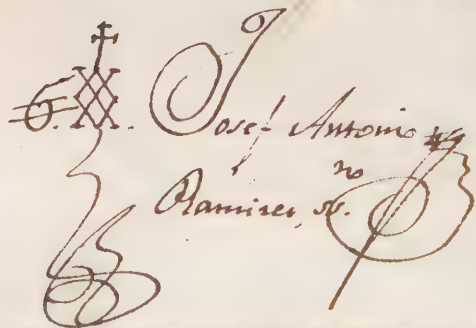 Josef Antonio
no
Ramirez, so.